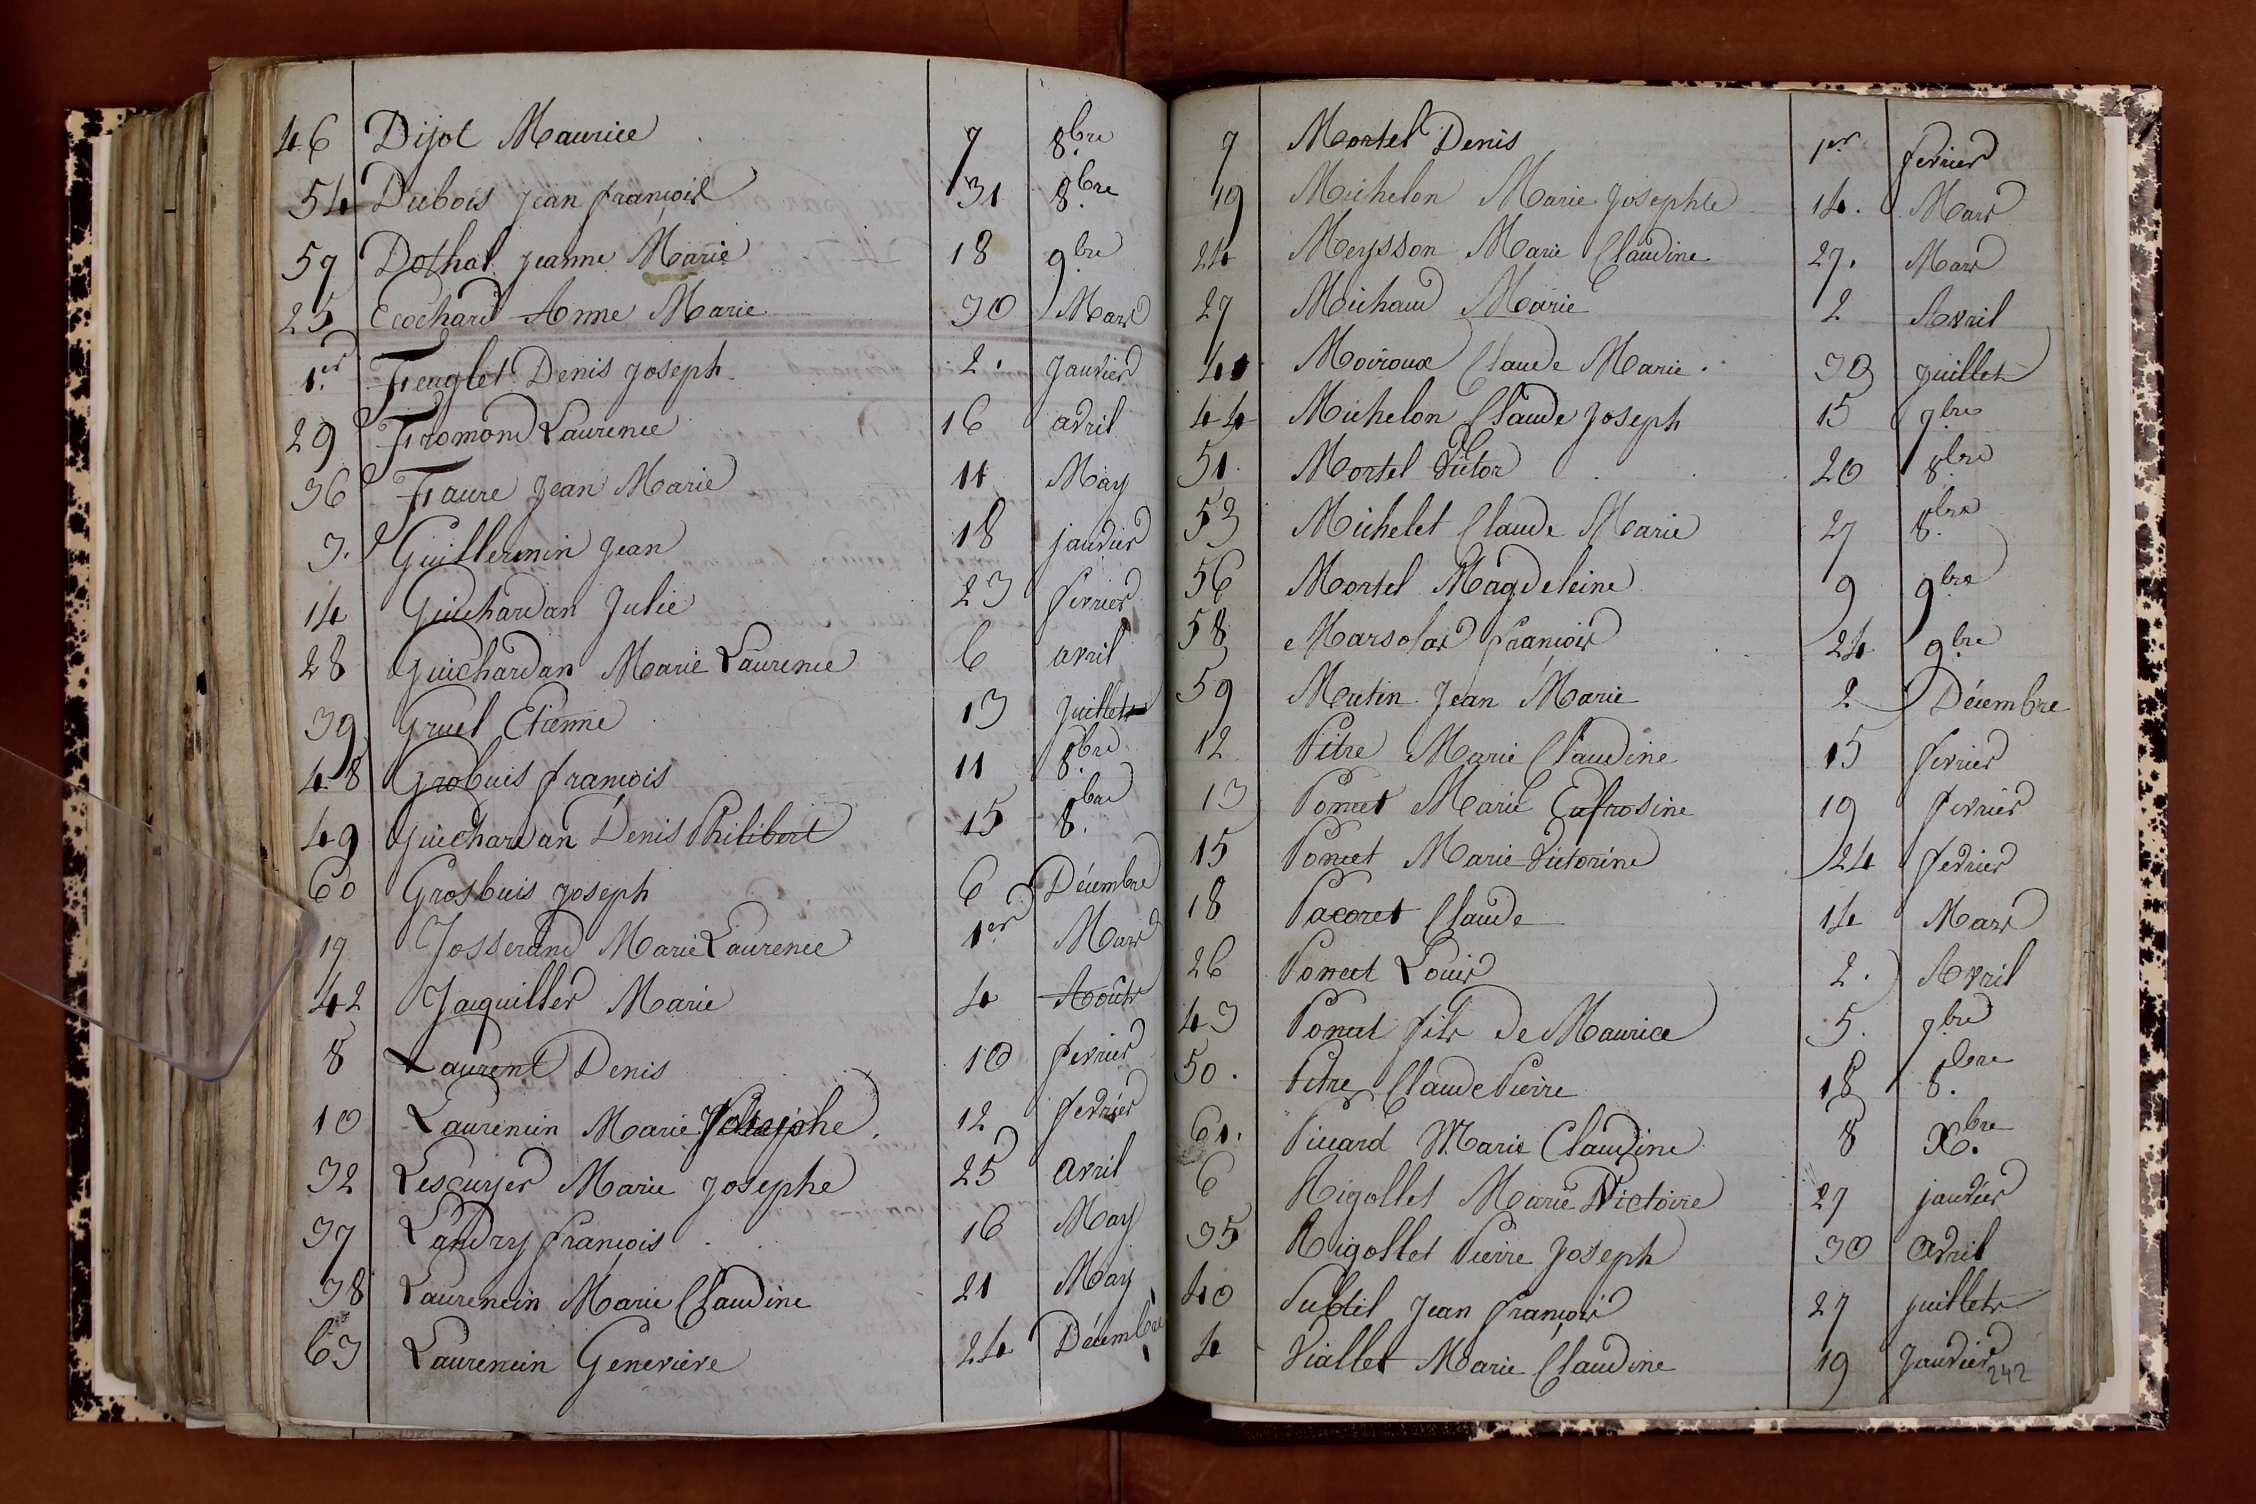 46 Dijot Maurice 7 8.bre
54 Dubois jean françois 31 8.bre
57 Dothal jeanne Marie 18 9bre
25 Ecochard Anne Marie 30 Mars
1.er Feuglet Denis joseph 2. janvier
29 Fromond Laurence 16 avril
36 Faure jean Marie 11 May
3. Guillermin jean 18 janvier
14 Guichardan Julie 23 fevrier
28 Guichardan Marie Laurence 6 avril
39 Gruel Etienne 13 juillet
48 Grobuis françois 11 8.bre
49 Guichardan Denis Philibert 15 8.bre
60 Grosbuis joseph 6 Décembre
17 Josserand Marie Laurence 1er Mars
42 Jaiquiller Marie 4 Août
8 Laurent Denis 10 fevrier
10 Laurencin Marie Josephe. 12 fevrier
32 Lescuyer Marie josephe 25 avril
37 Landry françois 16 May
38 Laurencin Marie Claudine 21 May
63 Laurencin Genevieve 24 Décembre
7 Mortel Denis 1er fevrier
19 Michelon Marie josephte 14. Mars
24 Meysson Marie Claudine 27. Mars
27 Michaud Marie 2 Avril
41 Moiroux Claude Marie. 30 juillet
44 Michelon Claude joseph 15 7bre
51. Mortel Victor 20 8.bre
53 Michelet Claude Marie 27 8.bre
56 Mortel Magdeleine 9 9bre
58 Marsolas françois 24 9bre
59 Matin jean Marie 2 Décembre
12 Pitre Marie Claudine 15 fevrier
13 Poncet Marie Eufrosine 19 fevrier
15 Poncet Marie Victorine 24 fevrier
18 Pacoret Claude 14 Mars
26 Poncet Louis 2. Avril
43 Poncet fils de Maurice 5. 7bre
50. Pitre Claude Pierre 18 8.bre
61. Picard Marie Claudine 8 X.bre
6 Rigollet Marie Victoire 27 janvier
35 Rigollet Pierre joseph 30 avril
40 Subtil jean françois 27 juillet
4 Viallet Marie Claudine 19 Janvier
242